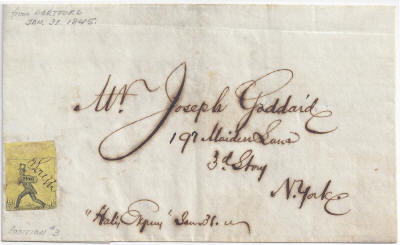 from HARTFORD
JAN. 31. 1845.
Mr. Joseph Goddard
197 Maiden Lane
3d Story
N. York
"Hale's Expres" Jan. 31.
POSITION #3